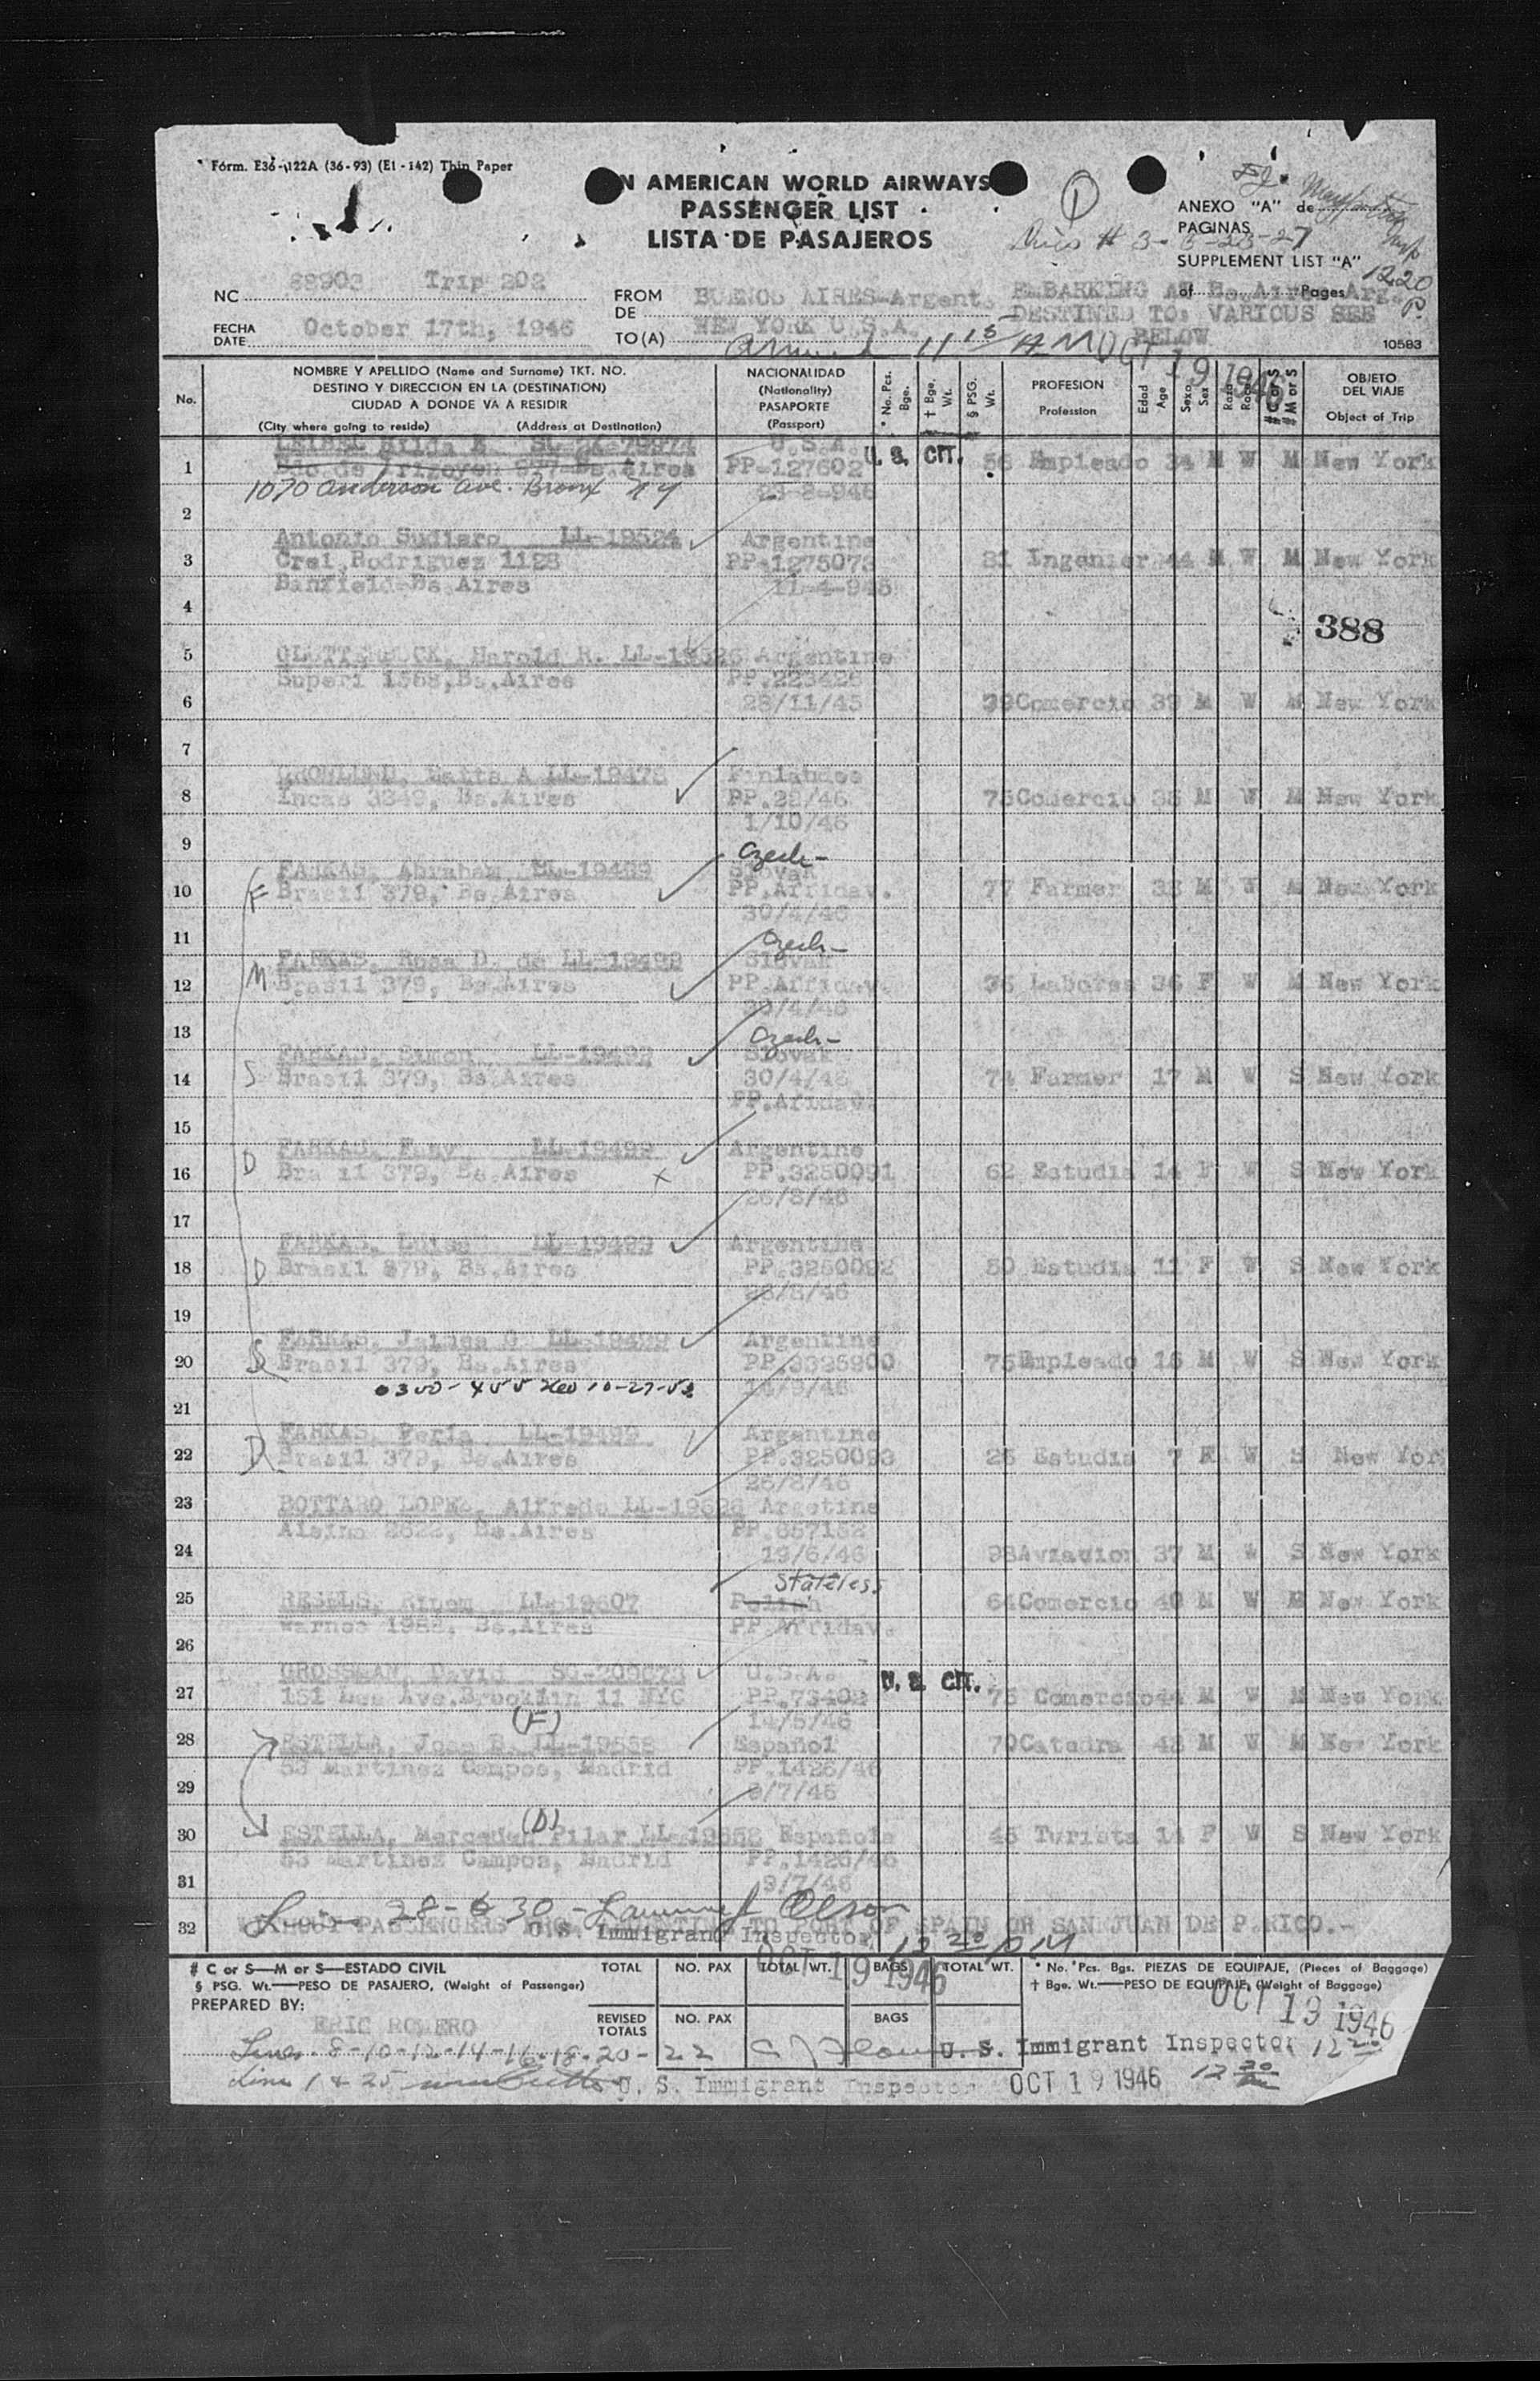 Form. E36-122A (36-93) (E1-142) Thin Paper
N AMERICAN WORLD AIRWAYS
PASSENGER LIST
LISTA DE PASAJEROS
1
ANEXO "A" de
PAGINAS
# 3-5-23-27
SUPPLEMENT LIST "A"
of Pages
1220
P.
NC 88903 Trip 202
FROM
DE BUENOS AIRES-Argent.
EMBARKING AT Bs. Aires Arg.
FECHA
DATE October 17th, 1946
TO (A) NEW YORK U.S.A.
DESTINED TO: VARIOUS SEE
BELOW
10583
11 15 AM OCT 19 1946
No.
NOMBRE Y APELLIDO (Name and Surname) TKT. NO.
DESTINO Y DIRECCION EN LA (DESTINATION)
CIUDAD A DONDE VA A RESIDIR
(City where going to reside) (Address at Destination)
NACIONALIDAD
(Nationality)
PASAPORTE
(Passport)
* No. Pcs. Bge.
† Bge. Wt.
§ PSG. Wt.
PROFESION
Profession
Edad
Age
Sexo
Sex
Raza
Race
# C or S
# M or S
OBJETO
DEL VIAJE
Object of Trip
Hilda U.S.A.
1 Bs.Aires PP-127602 U. S. CIT. 56 Empleado 34 M W M New York
1070 Anderson Ave. Bronx NY 23-8-946
2
Antonio LL-19524 Argentine
3 Cral.Rodriguez 1128 PP-1275073 81 Ingenier 44 M W M New York
Banfield-Bs Aires 11-4-946
4
388
5 CLUTTERBUCK, Harold R. LL-19526 Argentine
Superi 1568,Bs.Aires PP.223426
6 28/11/45 Comercio 39 M W M New York
7
LL-19478
8 Incas 3349, Bs.Aires PP.22/46 75 Comercio 35 M W M New York
1/10/46
9
Czech-
FARKAS, Abraham LL-19499 Slovak
10 F Brasil 379, Bs.Aires PP.Affidav. 77 Farmer 38 M W M New York
30/4/46
11
Czech-
FARKAS, Rosa D. de LL-19499 Slovak
12 M Brasil 379, Bs.Aires PP.Affidav. Labores 36 F W M New York
30/4/46
13
Czech-
FARKAS, Simon LL-19499 Slovak
14 S Brasil 379, Bs.Aires 30/4/46 74 Farmer 17 M W S New York
PP.Afidav.
15
FARKAS, Fany LL-19499 Argentine
16 D Bra il 379, Bs.Aires x PP.3250091 62 Estudia 14 F W S New York
26/8/46
17
FARKAS, Luisa LL-19499 Argentine
18 D Brasil 379, Bs.Aires PP.3250092 50 Estudia 11 F W S New York
26/8/46
19
FARKAS, G LL-19499 Argentine
20 S Brasil 379, Bs.Aires PP.3325900 75 Empleado 16 M W S New York
0300- 10-27-
21
FARKAS, Perla LL-19499 Argentine
22 D Brasil 379, Bs.Aires PP.3250093 Estudia 7 F W S New Yor
26/8/46
23 BOTTARO LOPEZ, Alfredo Argetine
Alsina 2622, Bs.Aires PP.657152
24 19/6/46 98 Aviacion 37 M W S New York
Stateless
25 LL-19607 Polish 64 Comercio 40 M W M New York
Bs.Aires PP.Affidav.
26
GROSSMAN, David U.S.A.
27 151 Lee Ave.Brooklin 11 NYC PP.73402 U. S. CIT. 75 Comercio 44 M W M New York
(F) 14/5/46
28 ESTELLA, Jose R. LL-19658 Español 70 Catedra 48 M W M New York
53 Martinez Campos, Madrid PP.1426/46
29 9/7/46
(D)
30 ESTELLA, Mercedes Pilar LL-19658 Española 45 Turista 14 F W S New York
53 Martinez Campos, Madrid PP.1426/46
31 9/7/46
28-&30- Olson
32 WITHOUT PASSENGERS FROM ARGENTINE TO PORT OF SPAIN OR SAN JUAN DE P.RICO.-
U.S. Immigrant Inspector 12 20 PM
OCT 19 1946
# C or S—M or S—ESTADO CIVIL
§ PSG. Wt.—PESO DE PASAJERO, (Weight of Passenger)
TOTAL NO. PAX TOTAL WT. BAGS TOTAL WT.
* No. Pcs. Bgs. PIEZAS DE EQUIPAJE, (Pieces of Baggage)
† Bge. Wt.—PESO DE EQUIPAJE, (Weight of Baggage)
PREPARED BY:
ERIC ROMERO
REVISED
TOTALS NO. PAX BAGS
OCT 19 1946
Lines 8-10-12-14-16-18-20-22 U. S. Immigrant Inspector 12 20
Line 1 & 25 U. S. Immigrant Inspector OCT 19 1946 12 20